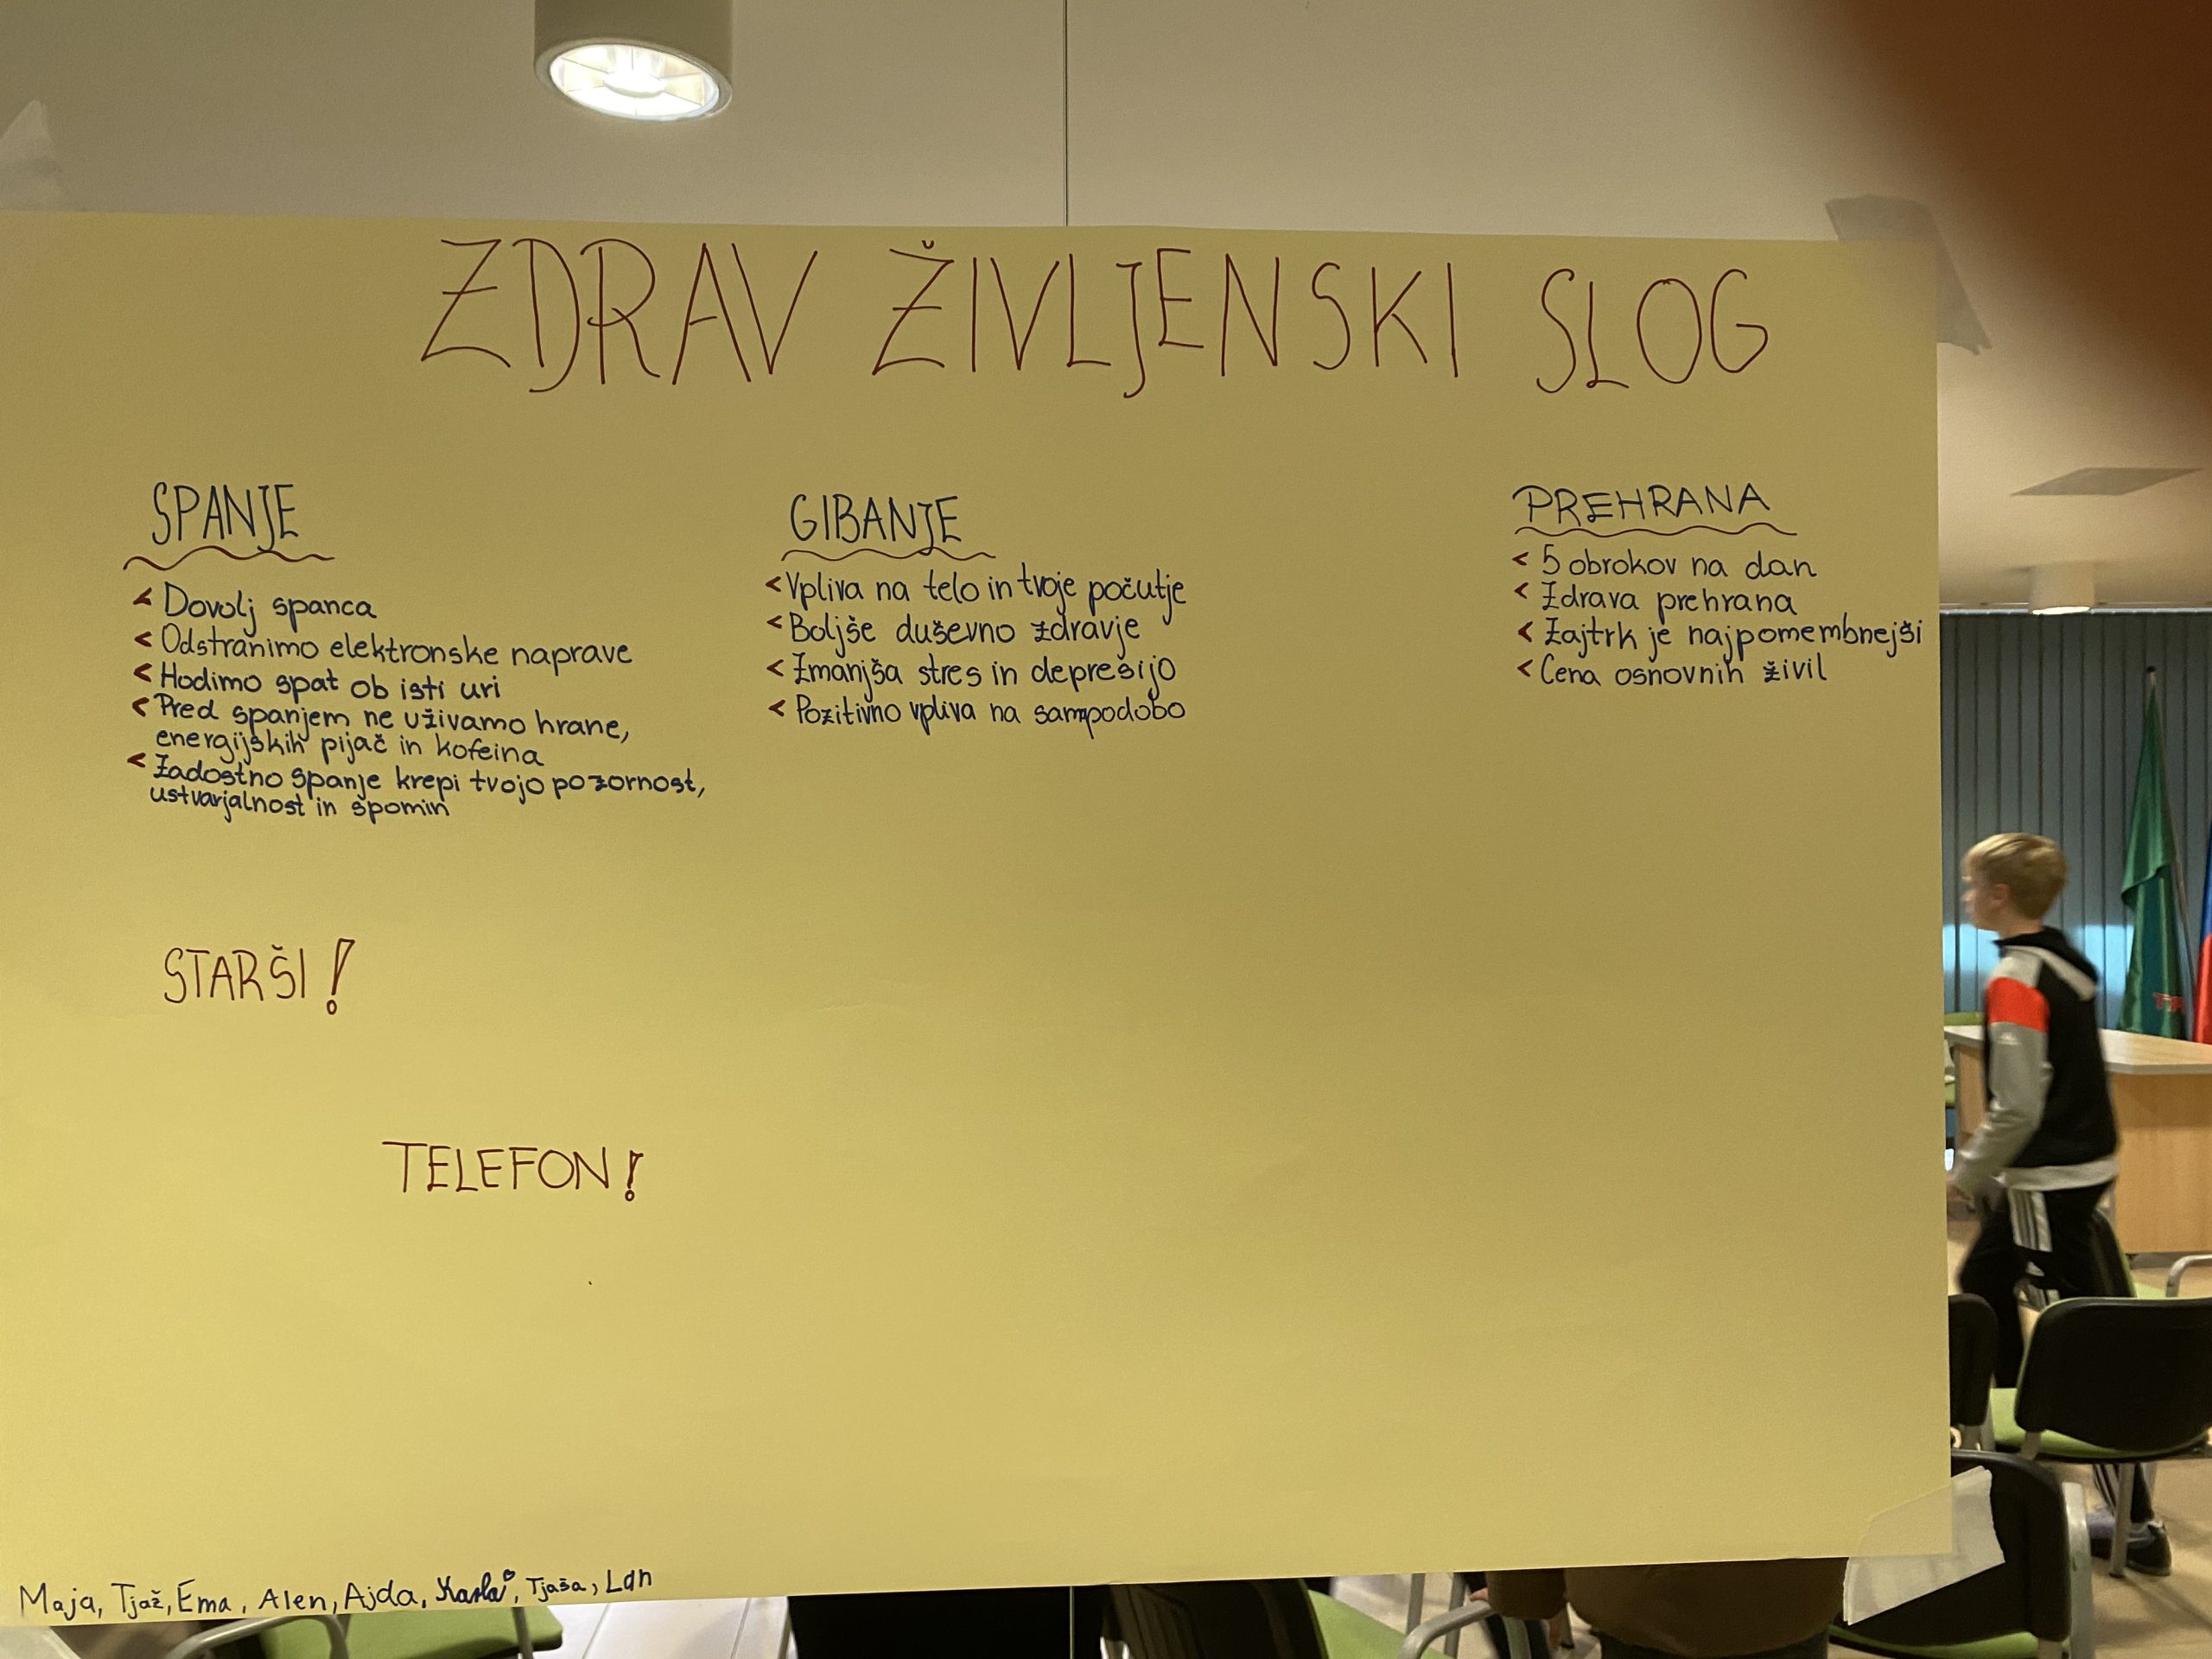 ZDRAV ŽIVLJENSKI SLOG
SPANJE
< Dovolj spanca
< Odstranimo elektronske naprave
< Hodimo spat ob isti uri
< Pred spanjem ne uživamo hrane,
energijskih pijač in kofeina
< Zadostno spanje krepi tvojo pozornost,
ustvarjalnost in spomin
GIBANJE
< Vpliva na telo in tvoje počutje
< Boljše duševno zdravje
< Zmanjša stres in depresijo
< Pozitivno vpliva na sampodobo
PREHRANA
< 5 obrokov na dan
< Zdrava prehrana
< Zajtrk je najpomembnejši
< Cena osnovnih živil
STARŠI!
TELEFON!
Maja, Tjaž, Ema, Alen, Ajda, Karla, Tjaša, Lan